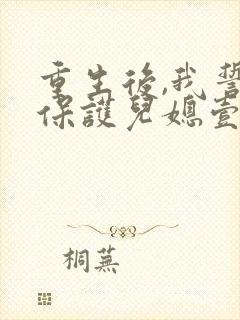 重生後,我誓
保護兒媳壹
桐蕪